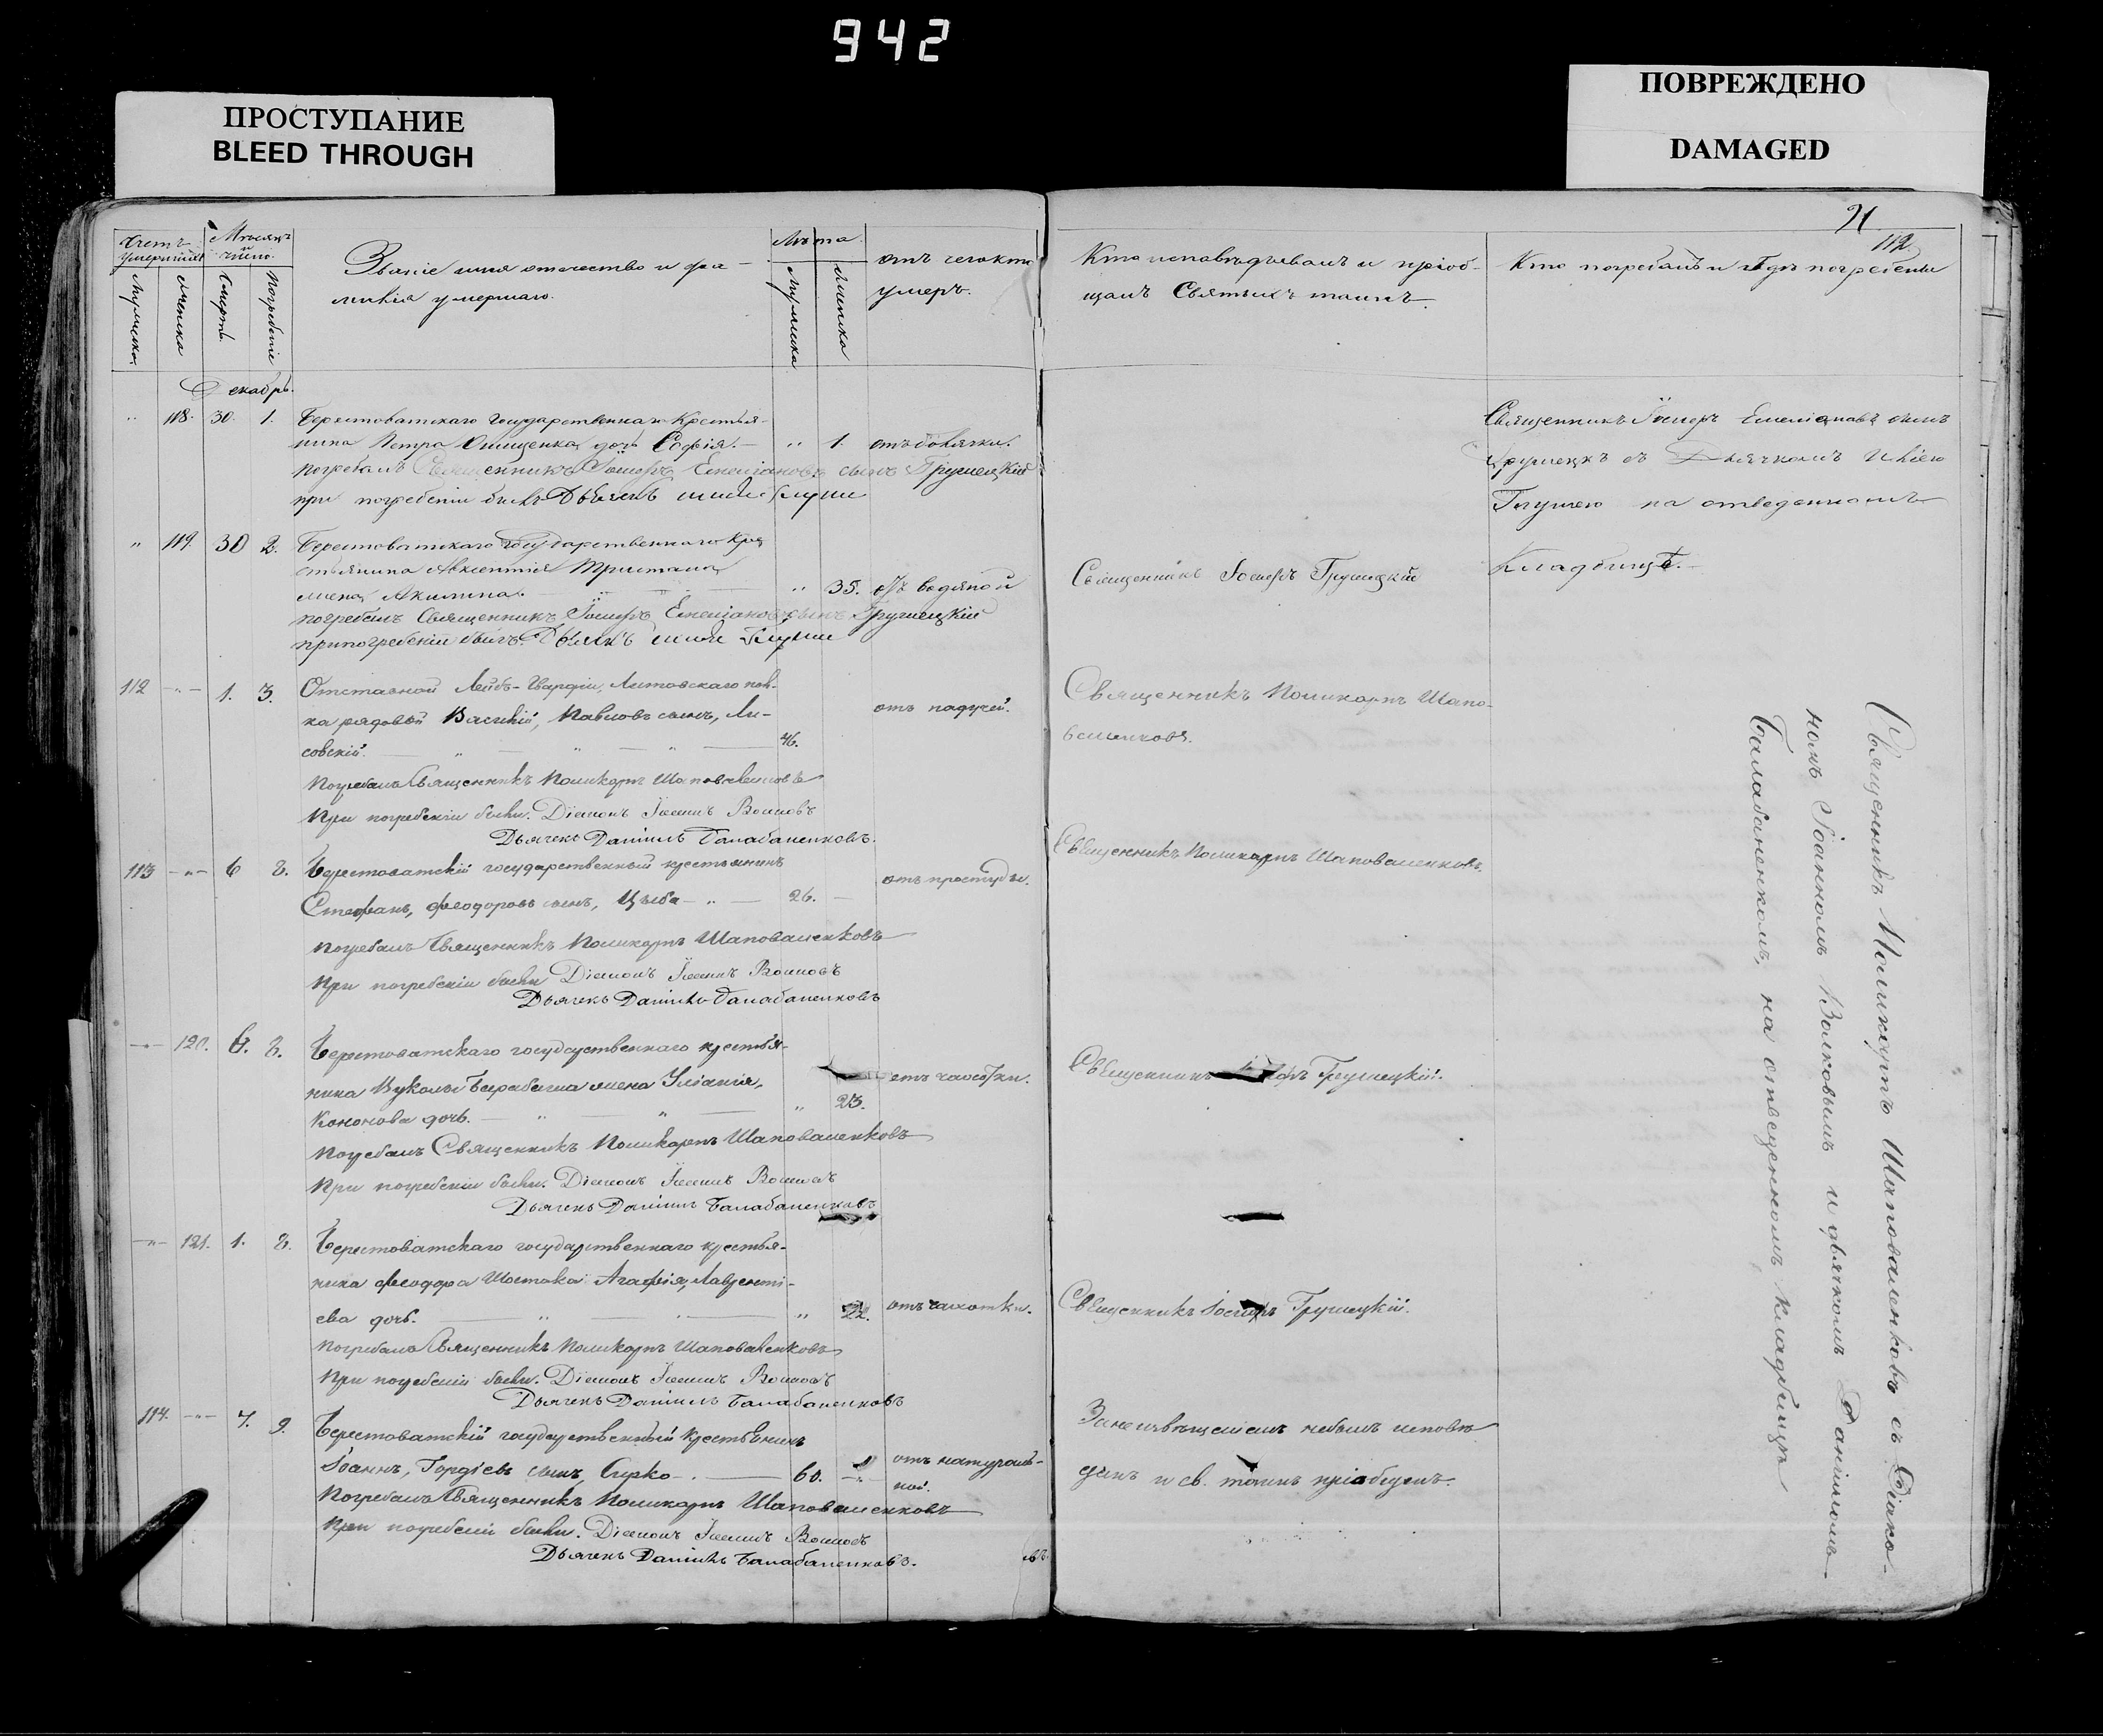 942
ПРОСТУПАНИЕ
BLEED THROUGH
ПОВРЕЖДЕНО
DAMAGED
112
Счетъ умершихъ
Мѣсяцъ и число
Мужеска
Женска
Смерть
Погребеніе
Званіе имя отечество и фа-
милія умершаго.
Лѣта
Мужеска
Женска
отъ чего кто
умеръ.
Кто исповѣдывалъ и пріоб-
щалъ Святыхъ таинъ.
Кто погребалъ и гдѣ погребены
Декабрь.
" 118. 30. 1. Берестоватскаго государственнаго Крестья-
нина Петра Онищенка дочь Софія. " 1.
погребалъ Священникъ Іосифъ Емеліановъ сынъ Грушецкій
при погребеніи былъ Дьячекъ
Священникъ Іосифъ Емеліановъ сынъ
Грушецкъ съ Дьячкомъ
на отведенномъ
Кладбищѣ.
" 119. 30 2. Берестоватскаго государственнаго Кре
стьянина Авксентія
жена Акилина. " 35. отъ водяной
погребалъ Священникъ Іосифъ Емеліановъ сынъ Грушецкій
при погребеніи былъ Дьячекъ
Священникъ Іосифъ Грушецкій
112 1. 3. Отставной Лейбъ-Гвардіи, Литовскаго пол-
ка рядовой Василій, Павловъ сынъ, Ли-
совскій. 46. отъ падучей.
Погребалъ Священникъ Поликарпъ Шаповаленковъ
При погребеніи были. Діаконъ Іоаннъ Волковъ
Дьячекъ Даніилъ Балабаненковъ.
Священникъ Поликарпъ Шапо-
валенковъ.
113 6 8. Берестоватскій государственный крестьянинъ
Стефанъ, Феодоровъ сынъ, Цыба 26. отъ простуды.
Погребалъ Священникъ Поликарпъ Шаповаленковъ
При погребеніи были Діаконъ Іоаннъ Волковъ
Дьячекъ Даніилъ Балабаненковъ
Священникъ Поликарпъ Шаповаленковъ.
120. 6. 8. Берестоватскаго государственнаго крестья-
нина Вуколы жена Уліанія,
Кононова дочь. " 23. отъ чахотки.
Погребалъ Священникъ Поликарпъ Шаповаленковъ
При погребеніи были. Діаконъ Іоаннъ Волковъ
Дьячекъ Даніилъ Балабаненковъ
Священникъ Іосифъ Грушецкій.
121. 1. 8. Берестоватскаго государственнаго крестья-
нина Феодора Шостака Агафія, Лавренті-
ева дочь. " 22. отъ чахотки.
Погребалъ Священникъ Поликарпъ Шаповаленковъ
При погребеніи были. Діаконъ Іоаннъ Волковъ
Дьячекъ Даніилъ Балабаненковъ
Священникъ Іосифъ Грушецкій.
114. 7. 9. Берестоватскій государственный крестьянинъ
Іоаннъ, Гордіевъ сынъ, Сирко 60. отъ натураль-
ной.
Погребалъ Священникъ Поликарпъ Шаповаленковъ
При погребеніи были. Діаконъ Іоаннъ Волковъ
Дьячекъ Даніилъ Балабаненковъ.
За неизвѣщеніемъ небылъ исповѣ
данъ и св. таинъ пріобщенъ.
Священникъ Поликарпъ Шаповаленковъ съ Діако-
номъ Іоанномъ Волковымъ и дьячкомъ Даніиломъ
Балабаненкомъ, на отведенномъ кладбищѣ